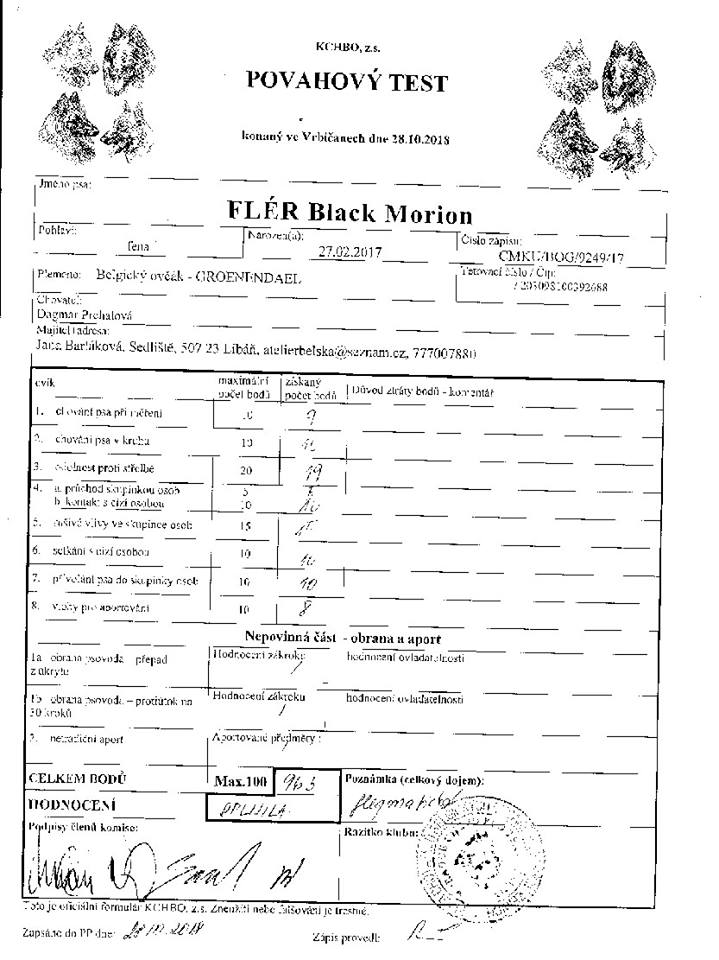 KCHBO, z.s.
POVAHOVÝ TEST
konaný ve Vrbičanech dne 28.10.2018
Jméno psa:
FLÉR Black Morion
Pohlaví: fena
Narozen(a): 27.02.2017
Číslo zápisu: CMKU/BOG/9249/17
Plemeno: Belgický ovčák - GROENENDAEL
Tetovací číslo / Čip:
Chovatel:
Dagmar Prchalová
Majitel (adresa:
Sedliště, 507 23 Libáň, atelierbelska@seznam.cz, 777007880
cvik maximální počet bodů získaný počet bodů Důvod ztráty bodů - komentář
1. chování psa při měření 10 9
2. chování psa v kruhu 10
3. odolnost proti střelbě 20 19
4. a. průchod skupinkou osob 5
b. kontakt s cizí osobou 10 10
5. rušivé vlivy ve skupince osob 15 15
6. setkání s cizí osobou 10 10
7. přivolání psa do skupinky osob 10 10
8. vlohy pro aportování 10 8
Nepovinná část - obrana a aport
1a obrana psovoda – přepad z úkrytu Hodnocení zákroku / hodnocení ovladatelnosti
1b obrana psovoda – protiútok na 50 kroků Hodnocení zákroku / hodnocení ovladatelnosti
2. netradiční aport Aportované předměty :
CELKEM BODŮ Max.100
Poznámka (celkový dojem):
HODNOCENÍ SPLNILA
flegmatická
Podpisy členů komise:
Razítko klubu:
Toto je oficiální formulář KCHBO, z.s. Zneužití nebo falšování je trestné.
Zapsáno do PP dne: 28.10.2018
Zápis provedl: